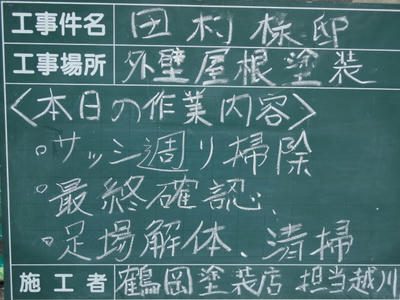 工事件名 田村様邸
工事場所 外壁屋根塗装
<本日の作業内容>
・サッシ週り掃除
・最終確認、
・足場解体、清掃
施工者 鶴岡塗装店 担当越川